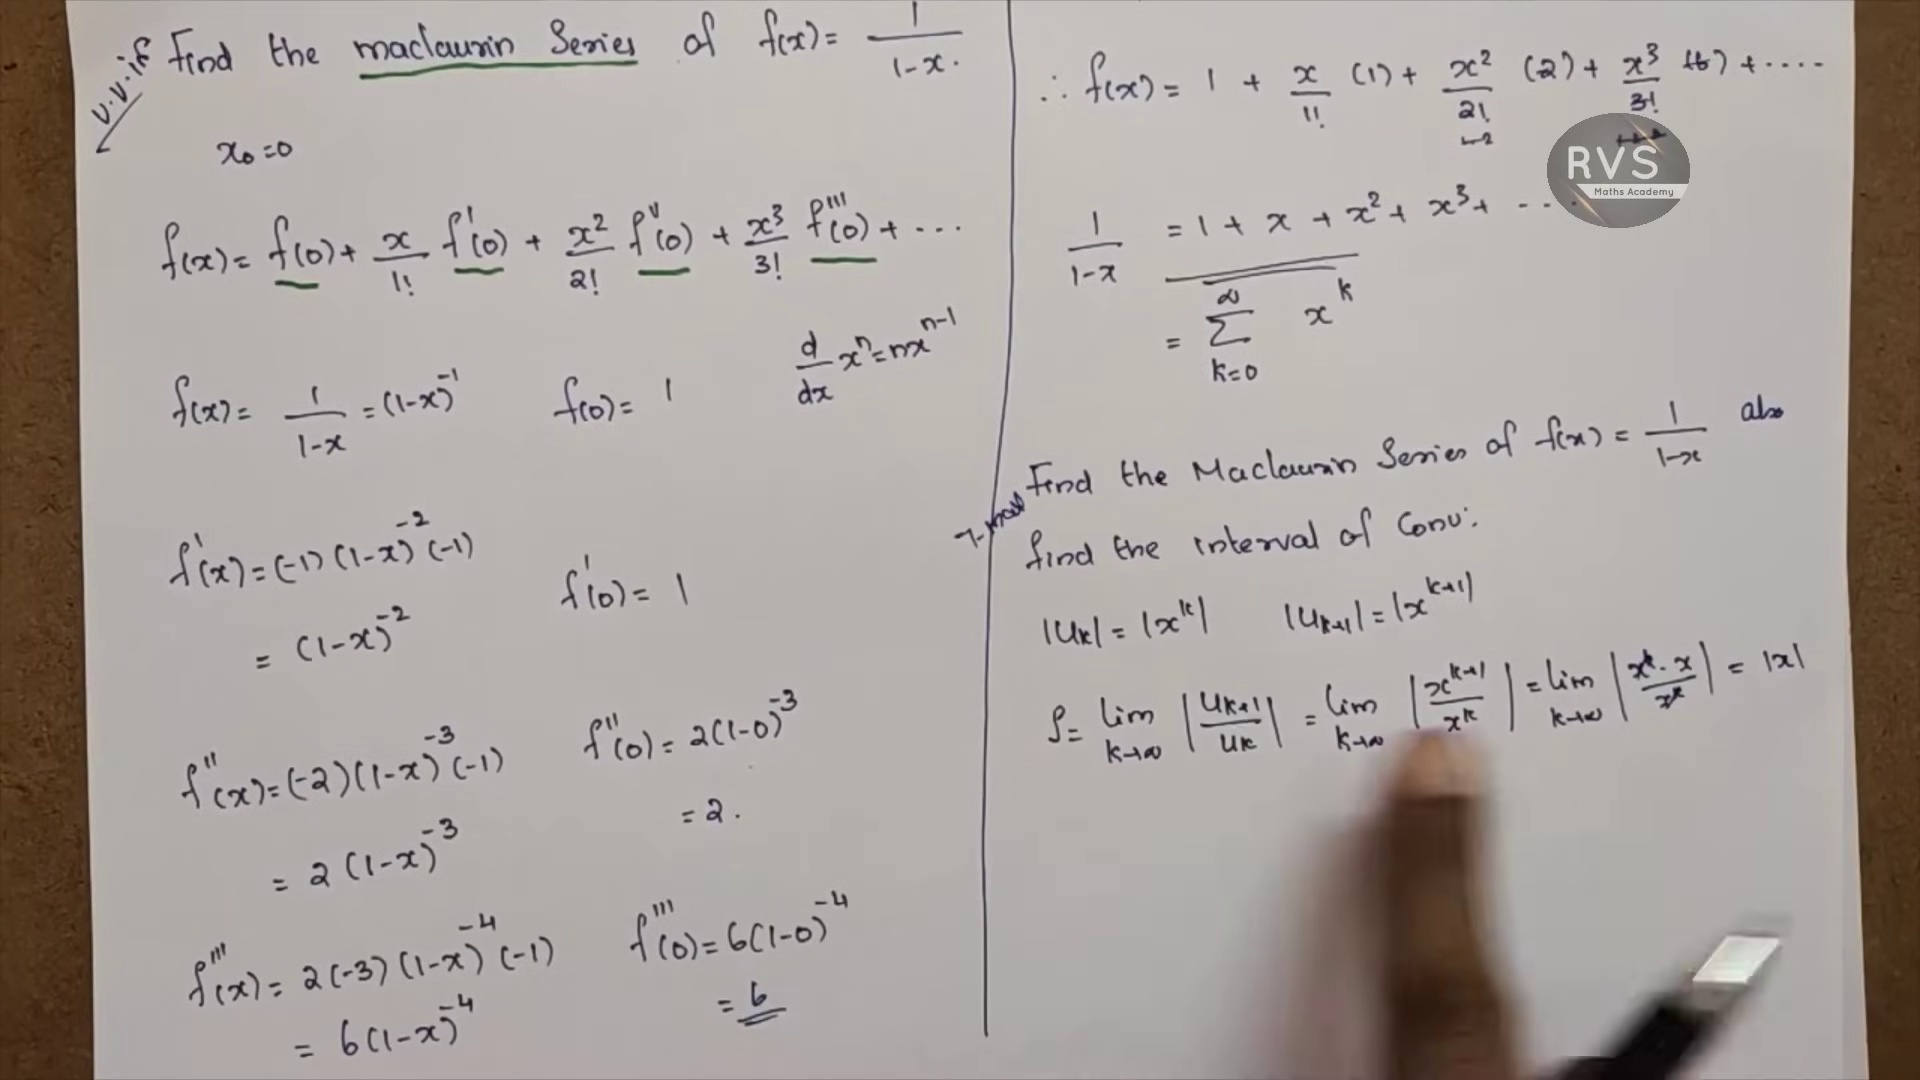 v.v.if Find the maclaurin Series of f(x) = 1/(1-x).
x₀=0
f(x) = f(0) + x/1! f'(0) + x²/2! f''(0) + x³/3! f'''(0) + ...
d/dx xⁿ = nxⁿ⁻¹
f(x) = 1/(1-x) = (1-x)⁻¹ f(0) = 1
f'(x) = (-1)(1-x)⁻²(-1)
= (1-x)⁻² f'(0) = 1
f''(x) = (-2)(1-x)⁻³(-1) f''(0) = 2(1-0)⁻³
= 2(1-x)⁻³ = 2.
f'''(x) = 2(-3)(1-x)⁻⁴(-1) f'''(0) = 6(1-0)⁻⁴
= 6(1-x)⁻⁴ = 6
∴ f(x) = 1 + x/1! (1) + x²/2! (2) + x³/3! (6) + ....
1-2
RVS
Maths Academy
1/(1-x) = 1 + x + x² + x³ + ...
= ∞∑k=0 xᵏ
Find the Maclaurin Series of f(x) = 1/(1-x) also
find the interval of Conv:
|uₖ| = |xᵏ| |uₖ₊₁| = |xᵏ⁺¹|
ρ = lim k→∞ |uₖ₊₁/uₖ| = lim k→∞ |xᵏ⁺¹/xᵏ| = lim k→∞ |xᵏ·x/xᵏ| = |x|